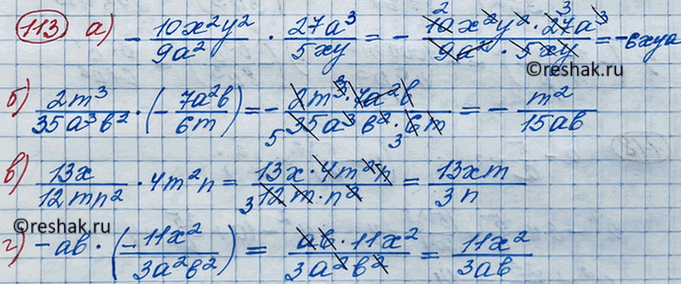 113 а) - 10x²y²/9a² · 27a³/5xy = - 10x²y² · 27a³/9a² · 5xy = -6xya
© reshak.ru
б) 2m³/35a³b² · (- 7a²b/6m) = - 2m³ · 7a²b/35a³b² · 6m = - m²/15ab
в) 13x/12mn² · 4m²n = 13x · 4m²n/12m · n² = 13xm/3n
г) -ab · (-11x²/3a²b²) = ab · 11x²/3a²b² = 11x²/3ab
© reshak.ru